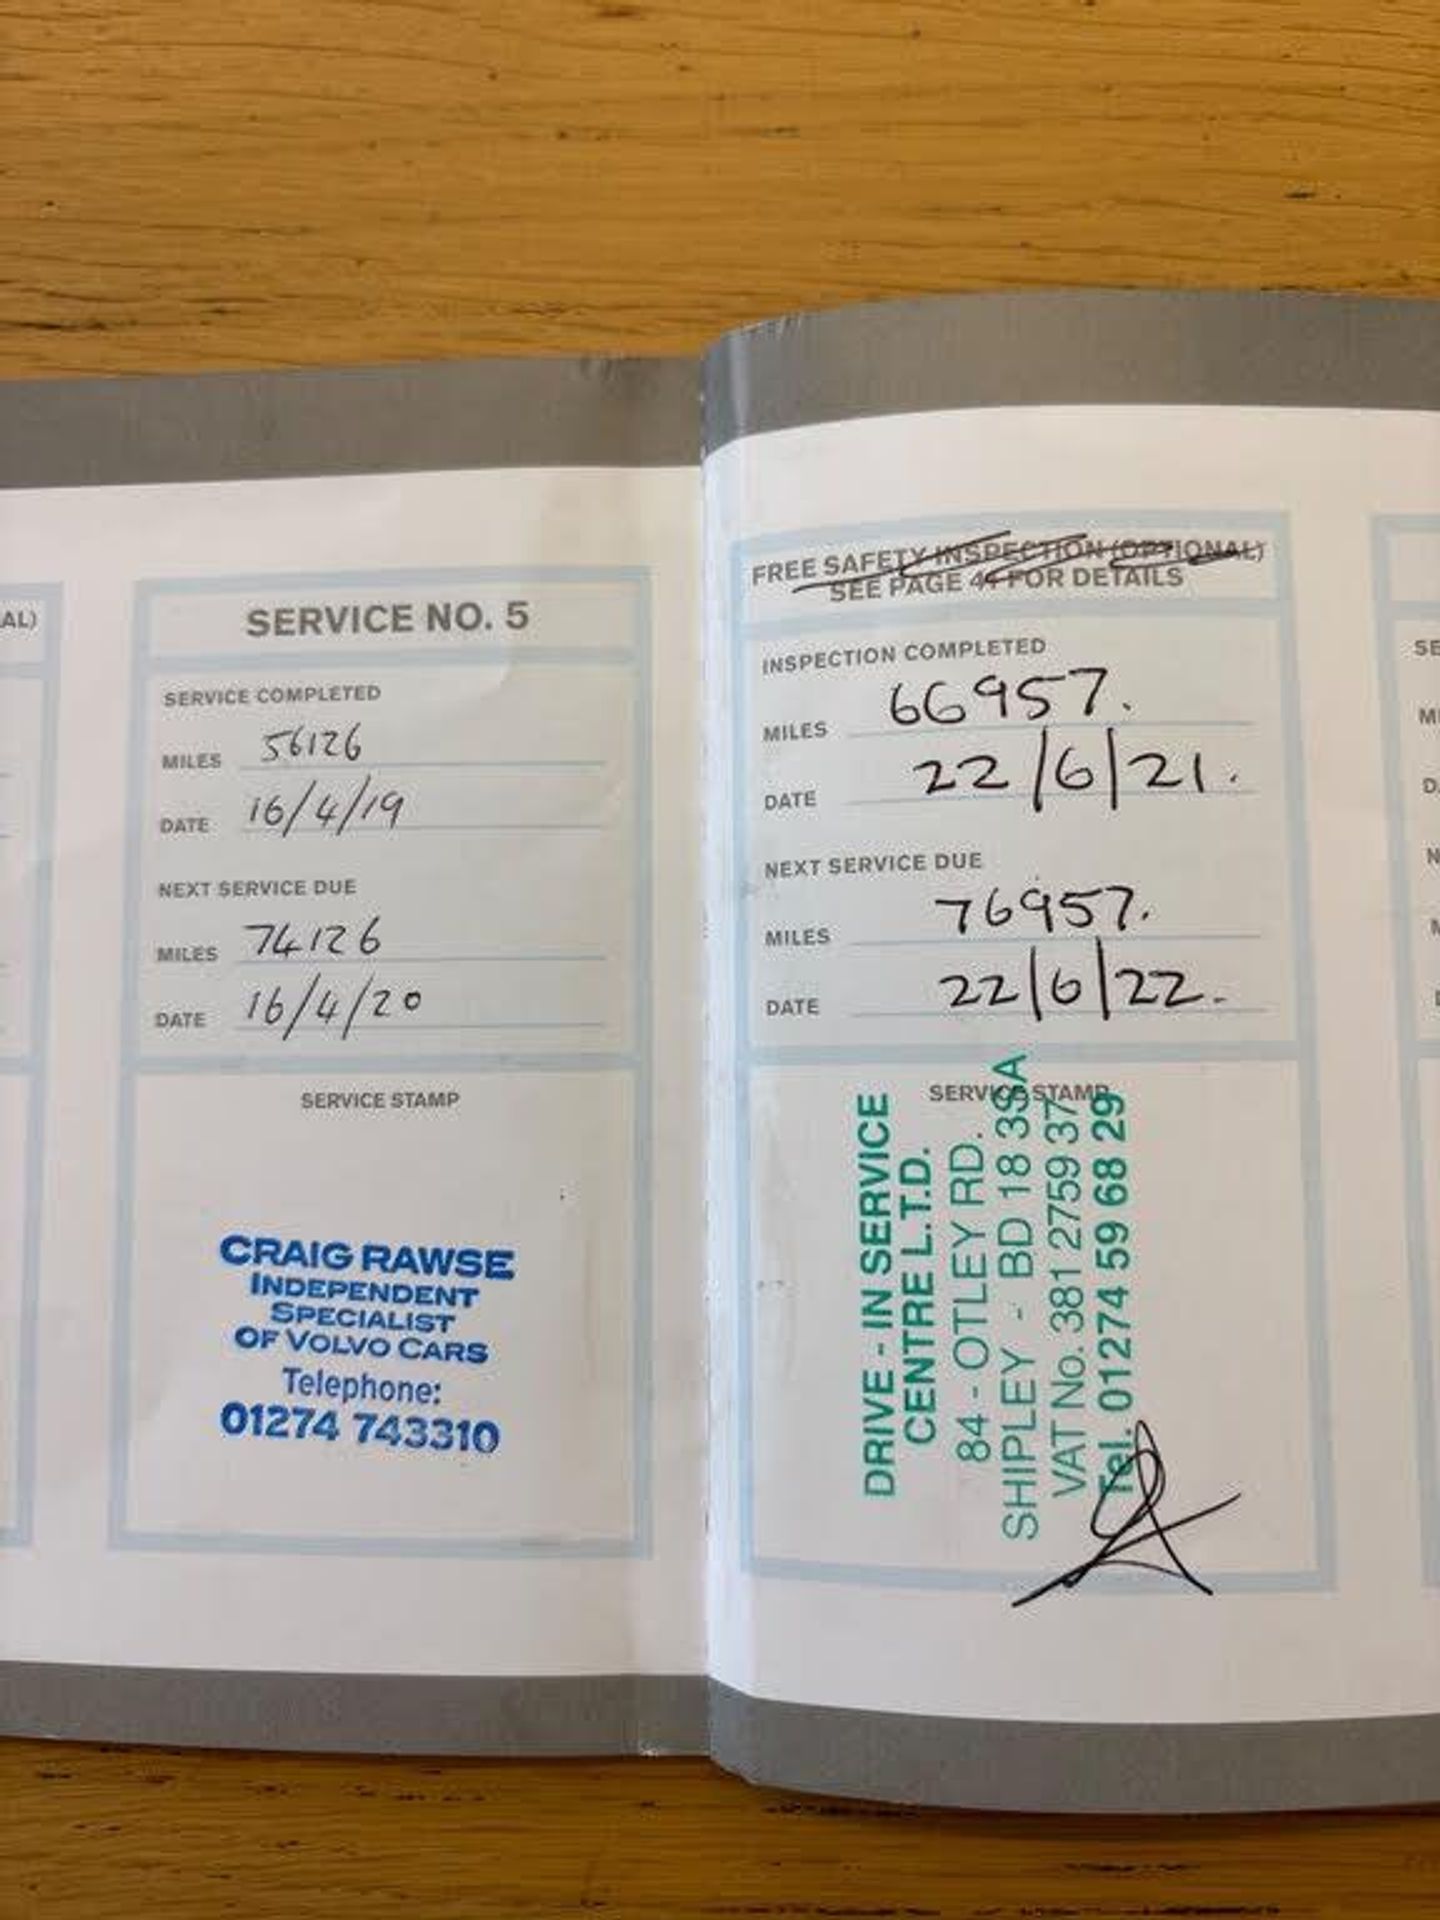 AL)
SERVICE NO. 5
SERVICE COMPLETED
MILES 56126
DATE 16/4/19
NEXT SERVICE DUE
MILES 74126
DATE 16/4/20
SERVICE STAMP
CRAIG RAWSE
INDEPENDENT
SPECIALIST
OF VOLVO CARS
Telephone:
01274 743310
FREE SAFETY INSPECTION (OPTIONAL)
SEE PAGE 41 FOR DETAILS
INSPECTION COMPLETED
MILES 66957.
DATE 22/6/21.
NEXT SERVICE DUE
MILES 76957.
DATE 22/6/22.
SERVICE STAMP
DRIVE - IN SERVICE
CENTRE L.T.D.
84 - OTLEY RD.
SHIPLEY - BD 18 3SA
VAT No. 381 2759 37
Tel. 01274 59 68 29
SE
MI
D
N
M